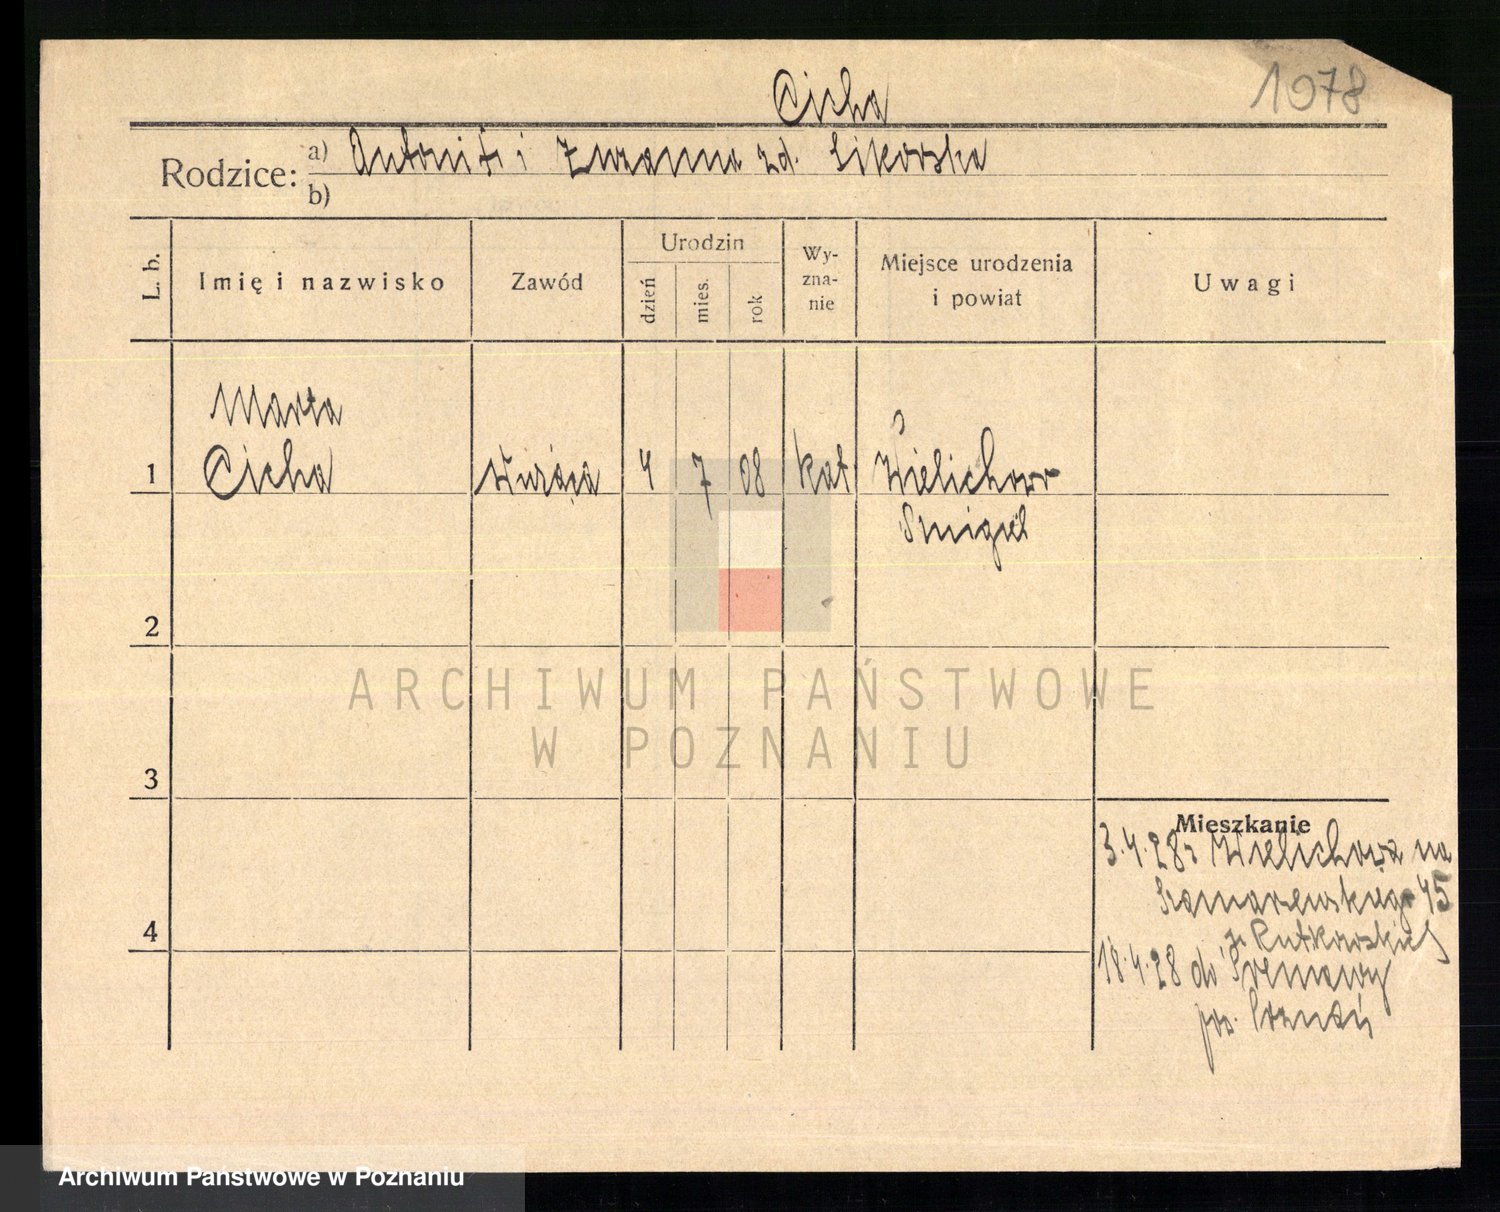 Cicha
1078
Rodzice: a) Antoni † i Zuzanna zd. Sikorska
b)
L. b.
Imię i nazwisko
Zawód
Urodzin
dzień
mies.
rok
Wy-
zna-
nie
Miejsce urodzenia
i powiat
Uwagi
Marta
1 Cicha służąca 4 7 08 kat Wielichowo
Śmigiel
2
ARCHIWUM PAŃSTWOWE
W POZNANIU
3
Mieszkanie
3.4.28 z Wielichowa na
Szamarzewskiego 45
4
Rutkowskiej
18.4.28 do
pow. Poznań
Archiwum Państwowe w Poznaniu